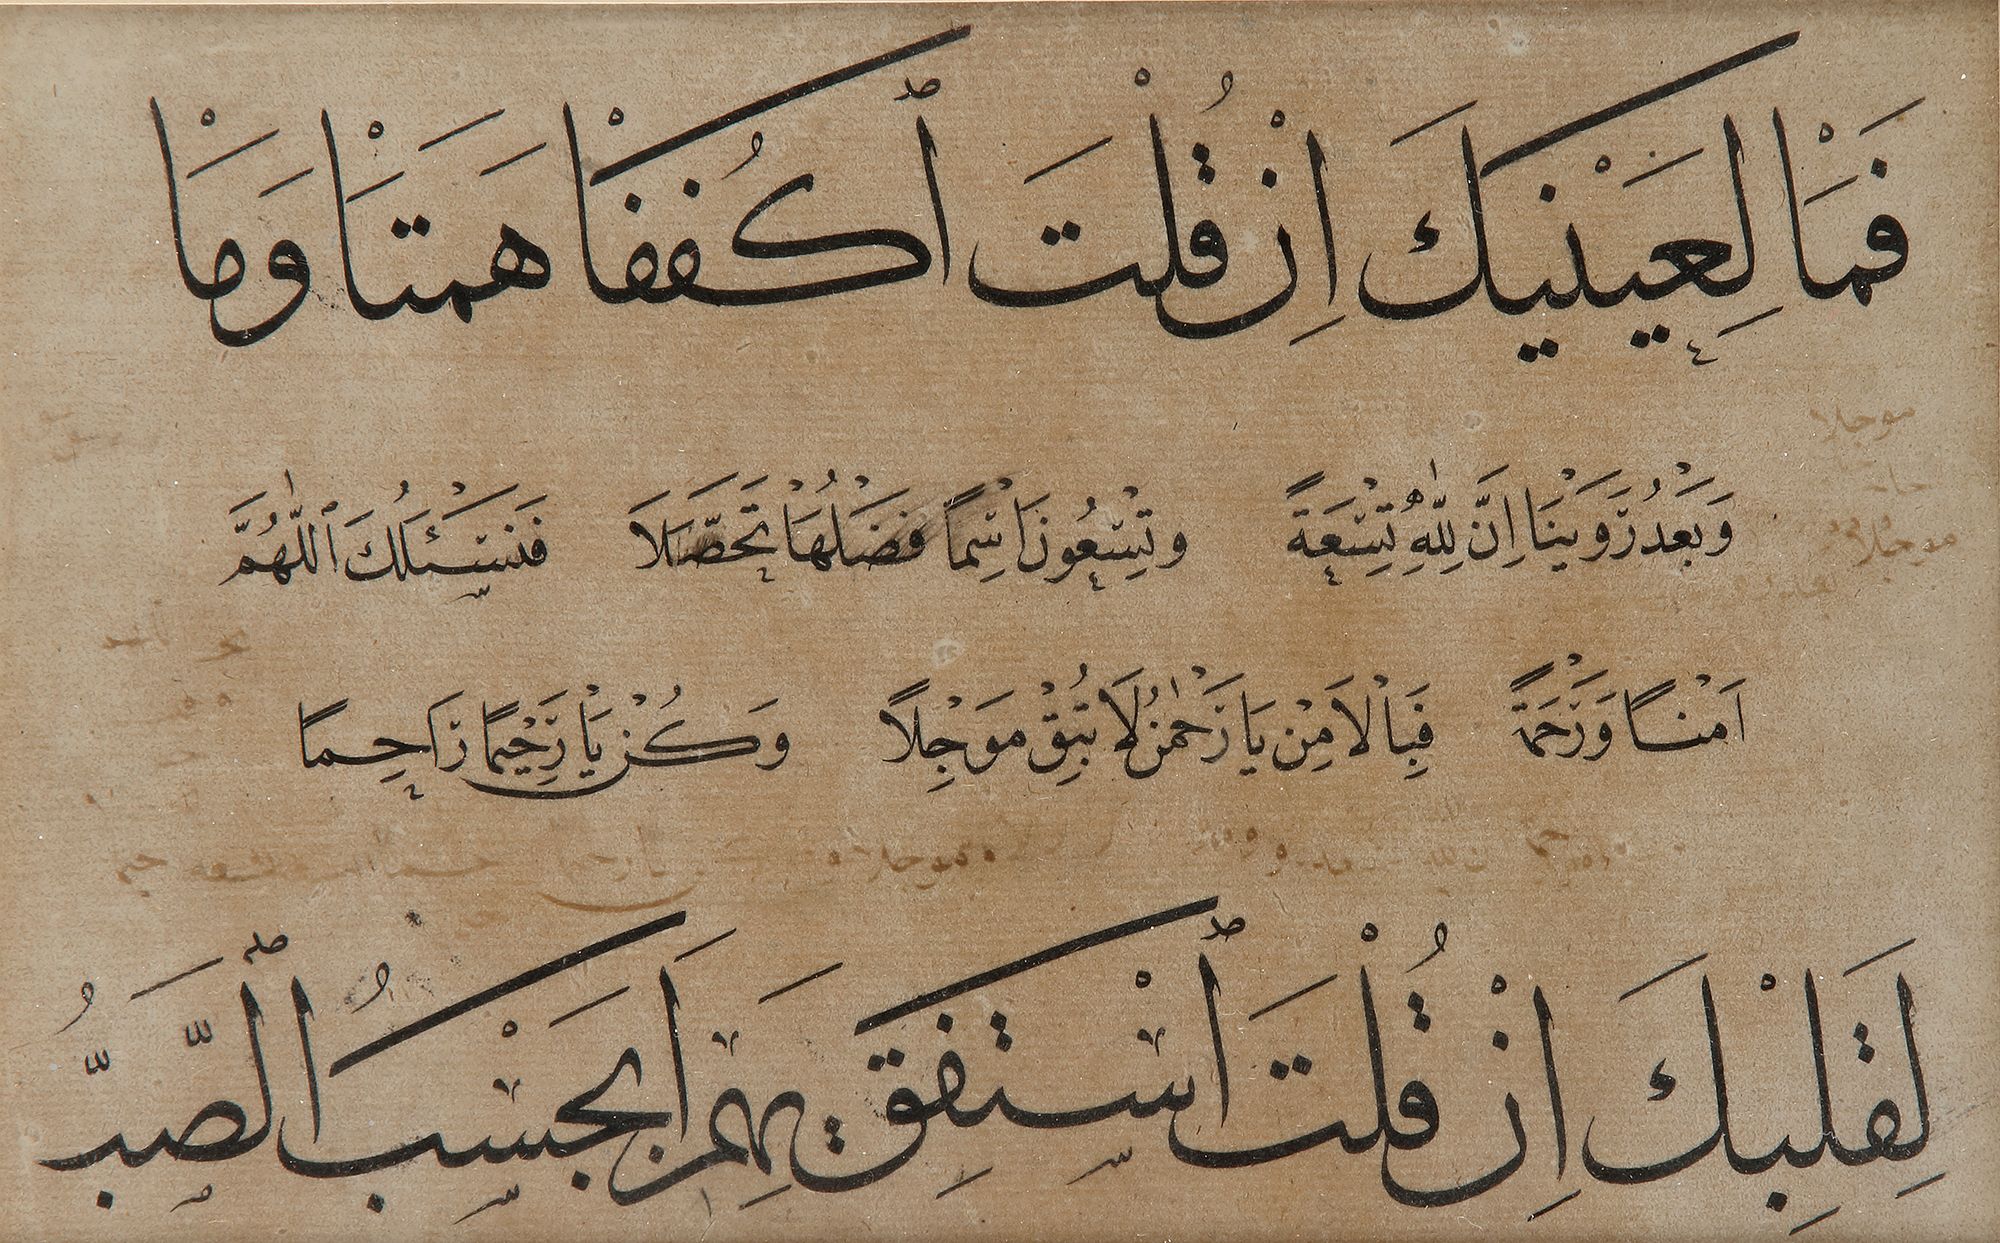 فَمَا لِعَيْنَيْكَ اِنْ قُلْتَ ٱكْفُفَا هَمَتَا وَمَا
وَبَعْدُ رَوَيْنَا اِنَّ لِلّٰهِ تِسْعَةً وَتِسْعُونَ اسْمًا فَضْلُهَا تَحَصَّلَا فَنَسْـَٔلُكَ ٱللّٰهُمَّ
اَمْنًا وَرَحْمَةً فَبِالْاَمْنِ يَا رَحْمٰنُ لَا تُبْقِ مَوْجِلًا وَكُنْ يَا رَحِيْمًا رَاحِمًا
لِقَلْبِكَ اِنْ قُلْتَ ٱسْتَفِقْ يَهِمِ اَيَحْسَبُ ٱلصَّبُّ